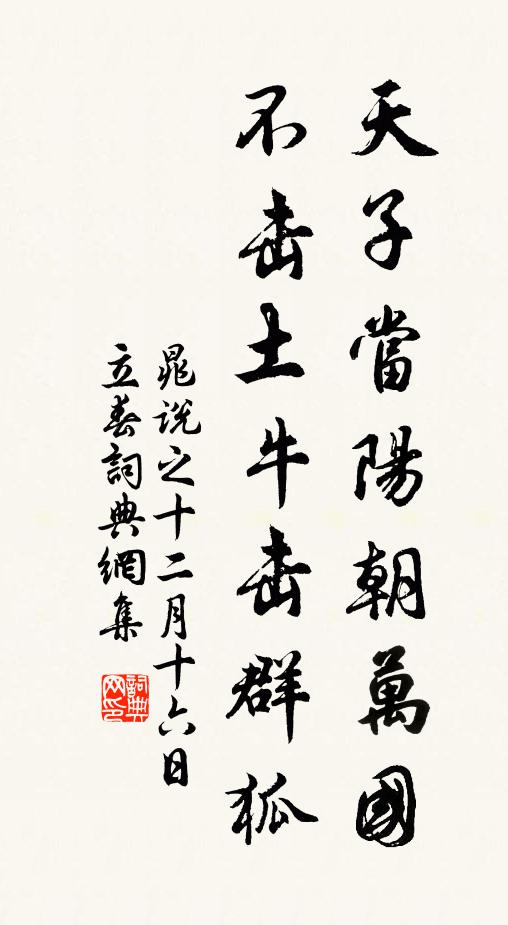 天子當陽朝萬國
不击土牛击群狐
晁說之十二月十六日
立春詞典網集
詞典网印